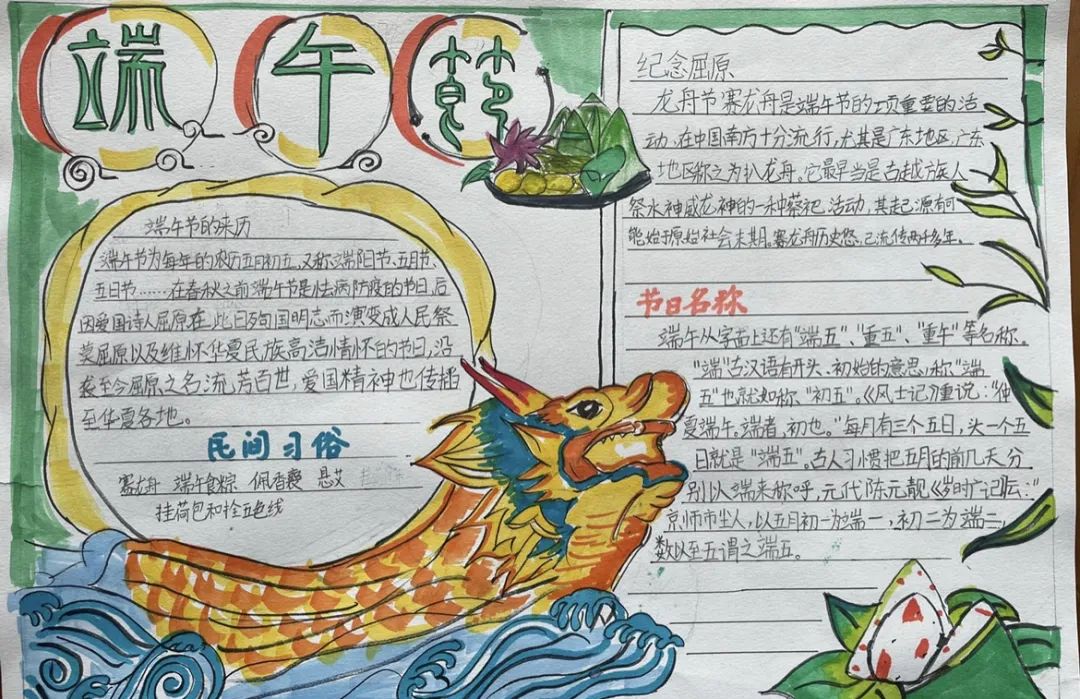 端午節
端午节的来历
端午节为每年的农历五月初五,又称端阳节、五月节、
五日节……在春秋之前端午节是怯病防疫的节日,后
因爱国诗人屈原在此日殉国明志而演变成人民祭
奠屈原以及维怀华夏民族高洁情怀的节日,沿
袭至今屈原之名流芳百世,爱国精神也传播
至华夏各地。
民间习俗
赛龙舟 端午食粽 佩香囊 悬艾
挂荷包和拴五色线
纪念屈原
龙舟节赛龙舟是端午节的一项重要的活
动,在中国南方十分流行,尤其是广东地区,广东
地区称之为扒龙舟,它最早当是古越族人
祭水神或龙神的一种祭祀活动,其起源有可
能始于原始社会末期。赛龙舟历史悠,已流传两千多年。
节日名称
端午从字面上还有"端五"、"重五"、"重午"等名称。
"端"古汉语有开头、初始的意思,称"端
五"也就如称、"初五"。《风土记》重说:"仲
夏端午。端者,初也。"每月有三个五日,头一个五
日就是"端五"。古人习惯把五月的前几天分
别以端来称呼,元代陈元靓《岁时广记》云:"
京师市尘人,以五月初一为端一,初二为端二,
数以至五谓之端五。